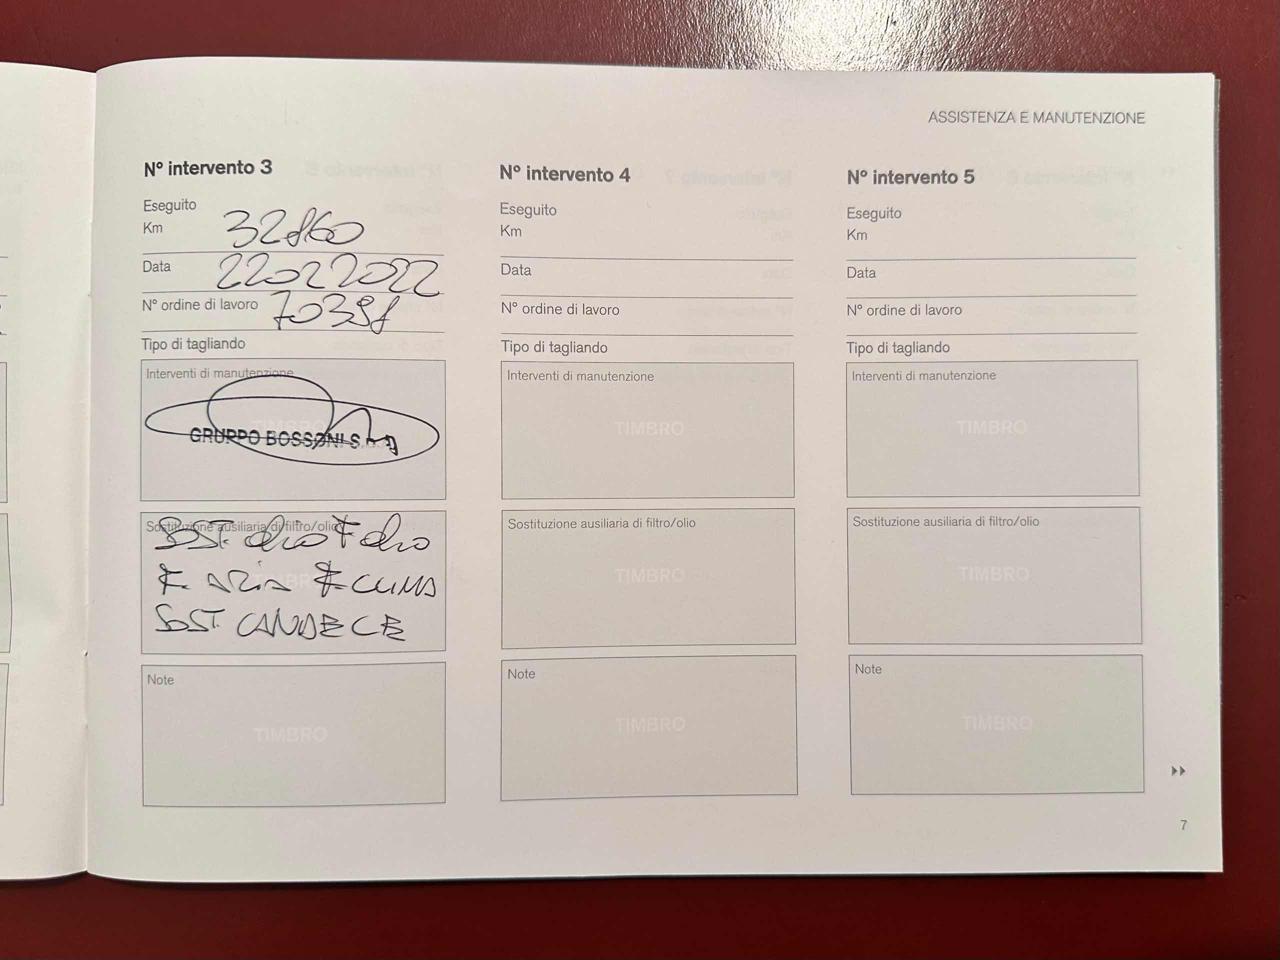 ASSISTENZA E MANUTENZIONE
Nº intervento 3
Eseguito
Km 32860
Data 22022022
Nº ordine di lavoro 70398
Tipo di tagliando
Interventi di manutenzione
TIMBRO
GRUPPO BOSSONI S
Sostituzione ausiliaria di filtro/olio
SOST. olio F olio
F. ARIA F. CLIMA
SOST CANDELE
Note
TIMBRO
Nº intervento 4
Eseguito
Km
Data
Nº ordine di lavoro
Tipo di tagliando
Interventi di manutenzione
TIMBRO
Sostituzione ausiliaria di filtro/olio
TIMBRO
Note
TIMBRO
Nº intervento 5
Eseguito
Km
Data
Nº ordine di lavoro
Tipo di tagliando
Interventi di manutenzione
TIMBRO
Sostituzione ausiliaria di filtro/olio
TIMBRO
Note
TIMBRO
7